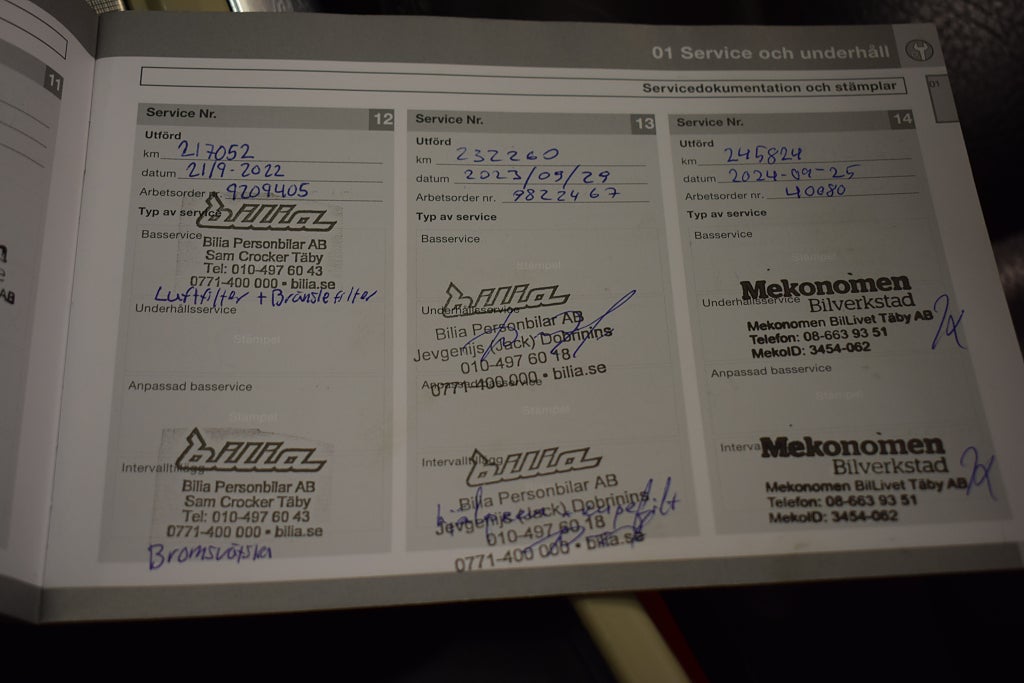 11
01 Service och underhåll
01
Servicedokumentation och stämplar
Service Nr. 12
Utförd
km 217052
datum 21/9-2022
Arbetsorder nr. 9209405
Typ av service
bilia
Basservice
Bilia Personbilar AB
Sam Crocker Täby
Tel: 010-497 60 43
0771-400 000 • bilia.se
Luftfilter + Bränslefilter
Underhållsservice
Stämpel
Anpassad basservice
Stämpel
bilia
Intervalltillägg
Bilia Personbilar AB
Sam Crocker Täby
Tel: 010-497 60 43
0771-400 000 • bilia.se
Bromsvätska
Service Nr. 13
Utförd
km 232260
datum 2023/09/29
Arbetsorder nr. 9822467
Typ av service
Basservice
Stämpel
bilia
Underhållsservice
Bilia Personbilar AB
Jevgenijs (Jack) Dobrinins
010-497 60 18
Anpassad basservice
0771-400 000 • bilia.se
Stämpel
bilia
Intervalltillägg
Bilia Personbilar AB
Jevgenijs (Jack) Dobrinins
010-497 60 18
0771-400 000 • bilia.se
Service Nr. 14
Utförd
km 245824
datum 2024-09-25
Arbetsorder nr. 40080
Typ av service
Basservice
Stämpel
Mekonomen
Underhållsservice
Bilverkstad
Mekonomen BilLivet Täby AB
Telefon: 08-663 93 51
MekoID: 3454-062
Anpassad basservice
Stämpel
Mekonomen
Bilverkstad
Mekonomen BilLivet Täby AB
Telefon: 08-663 93 51
MekoID: 3454-062